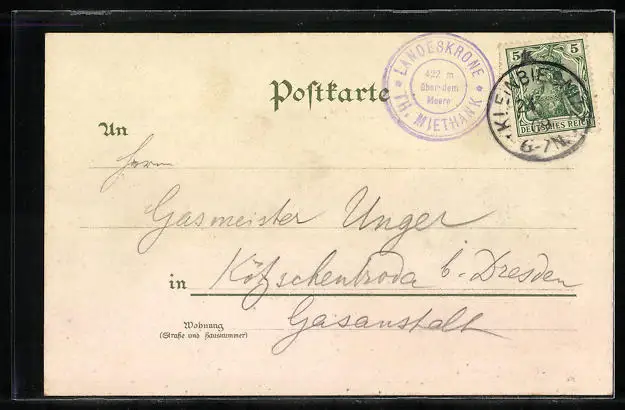 Postkarte
LANDESKRONE
422 m
über dem
Meere
TH. MIETHANK
5 5
DEUTSCHES REICH
24
6-7N.
An
Herrn
Gasmeister Unger
in Kötzschenbroda b. Dresden
Gasanstalt
Wohnung
(Straße und Hausnummer)